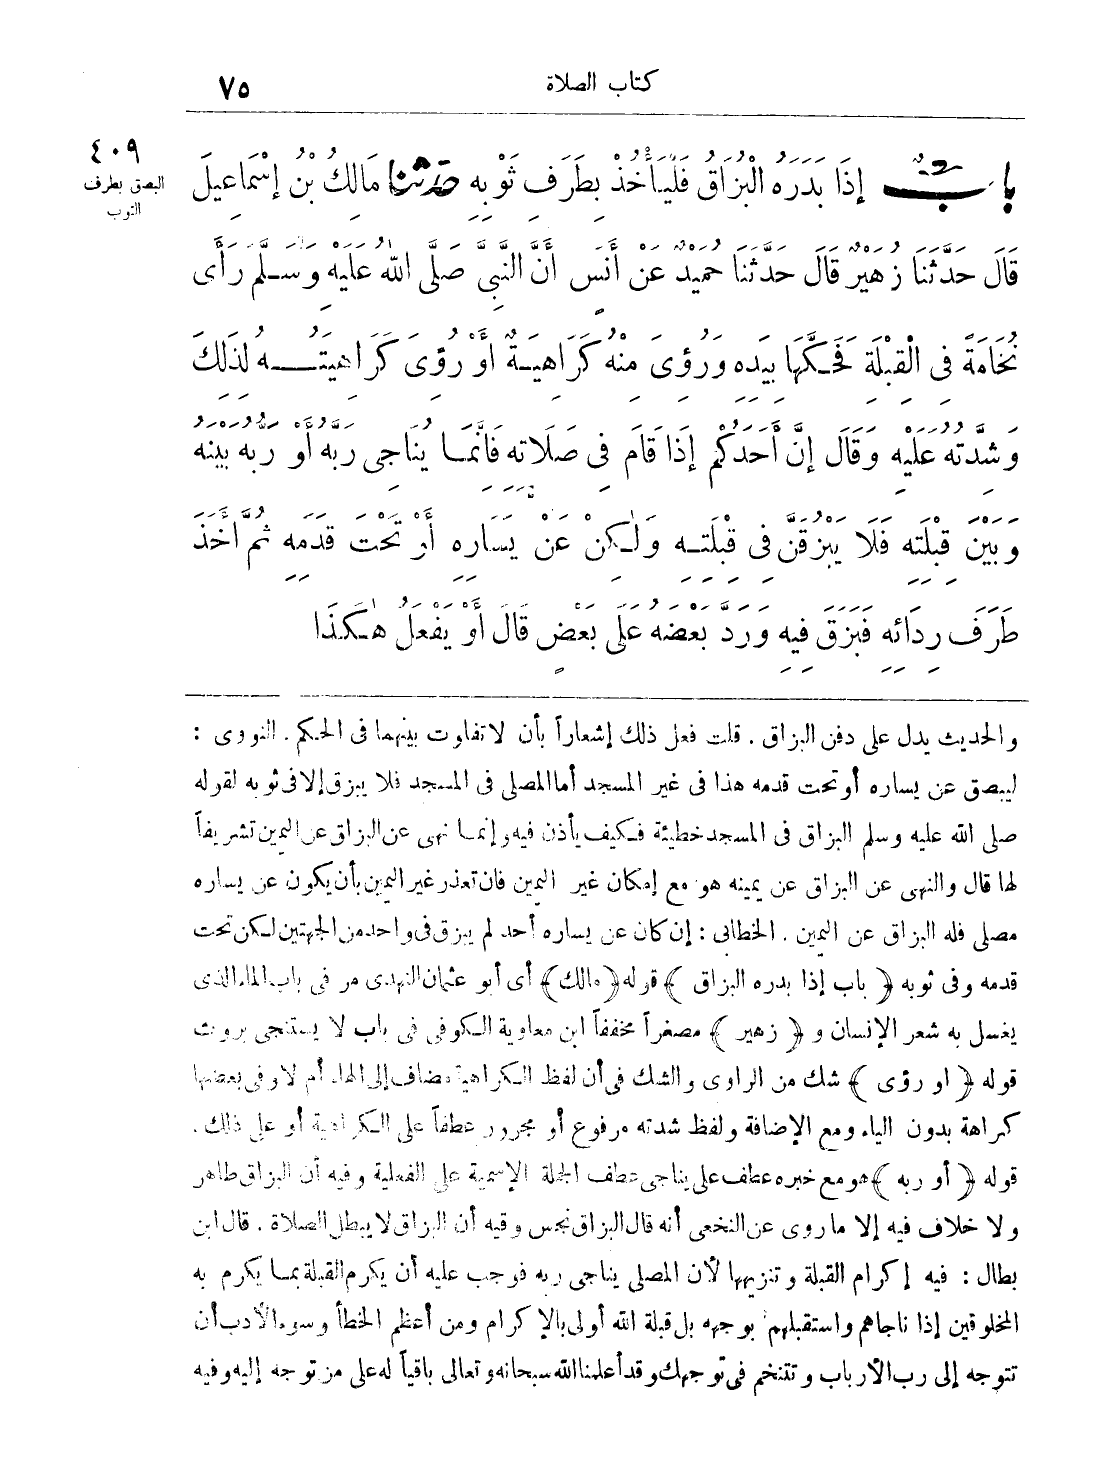 كتاب الصلاة
٧٥
٤٠٩
البصق بطرف
الثوب
بابٌ إِذَا بَدَرَهُ الْبُزَاقُ فَلْيَأْخُذْ بِطَرَفِ ثَوْبِهِ حَدَّثَنَا مَالِكُ بْنُ إِسْمَاعِيلَ
قَالَ حَدَّثَنَا زُهَيْرٌ قَالَ حَدَّثَنَا حُمَيْدٌ عَنْ أَنَسٍ أَنَّ النَّبِيَّ صَلَّى اللهُ عَلَيْهِ وَسَلَّمَ رَأَى
نُخَامَةً فِي الْقِبْلَةِ فَحَكَّهَا بِيَدِهِ وَرُؤِيَ مِنْهُ كَرَاهِيَةٌ أَوْ رُؤِيَ كَرَاهِيَتُهُ لِذَلِكَ
وَشِدَّتُهُ عَلَيْهِ وَقَالَ إِنَّ أَحَدَكُمْ إِذَا قَامَ فِي صَلَاتِهِ فَإِنَّمَا يُنَاجِي رَبَّهُ أَوْ رَبُّهُ بَيْنَهُ
وَبَيْنَ قِبْلَتِهِ فَلَا يَبْزُقَنَّ فِي قِبْلَتِهِ وَلٰكِنْ عَنْ يَسَارِهِ أَوْ تَحْتَ قَدَمِهِ ثُمَّ أَخَذَ
طَرَفَ رِدَائِهِ فَبَزَقَ فِيهِ وَرَدَّ بَعْضَهُ عَلَى بَعْضٍ قَالَ أَوْ يَفْعَلُ هٰكَذَا
والحديث يدل على دفن البزاق . قلت فعل ذلك إشعاراً بأن لا تفاوت بينهما في الحكم . النووى :
ليبصق عن يساره أو تحت قدمه هذا فى غير المسجد أما المصلى فى المسجد فلا يبزق إلا فى ثوبه لقوله
صلى الله عليه وسلم البزاق فى المسجد خطيئة فكيف يأذن فيه وإنما نهى عن البزاق عن اليمين تشريفاً
لها قال والنهى عن البزاق عن يمينه هو مع إمكان غير اليمين فان تعذر غير اليمين بأن يكون عن يساره
مصلى فله البزاق عن اليمين . الخطابى : إن كان عن يساره أحد لم يبزق فى واحد من الجهتين لكن تحت
قدمه وفى ثوبه ﴿ باب إذا بدره البزاق ﴾ قوله ﴿مالك﴾ أى أبو عثمان النهدى مر فى باب الماء الذى
يغسل به شعر الإنسان و ﴿ زهير ﴾ مصغراً مخففاً ابن معاوية الكوفى فى باب لا يستنجى بروث
قوله ﴿ او رؤى ﴾ شك من الراوى والشك فى أن لفظ الكراهية مضاف إلى الهاء أم لا وفى بعضها
كراهة بدون الياء ومع الإضافة ولفظ شدته مرفوع أو مجرور عطفاً على الكراهية أو على ذلك .
قوله ﴿ أو ربه ﴾ هو مع خبره عطف على يناجى عطف الجملة الإسمية على الفعلية وفيه أن البزاق طاهر
ولا خلاف فيه إلا ما روى عن النخعى أنه قال البزاق نجس وفيه أن البزاق لا يبطل الصلاة . قال ابن
بطال : فيه إكرام القبلة وتنزيهها لأن المصلى يناجى ربه فوجب عليه أن يكرم القبلة بما يكرم به
المخلوقين إذا ناجاهم واستقبلهم بوجهه بل قبلة الله أولى بالإكرام ومن أعظم الخطأ وسوء الأدب أن
تتوجه إلى رب الأرباب وتتنخم فى توجهك وقد أعلمنا الله سبحانه وتعالى باقياً له على من توجه إليه وفيه